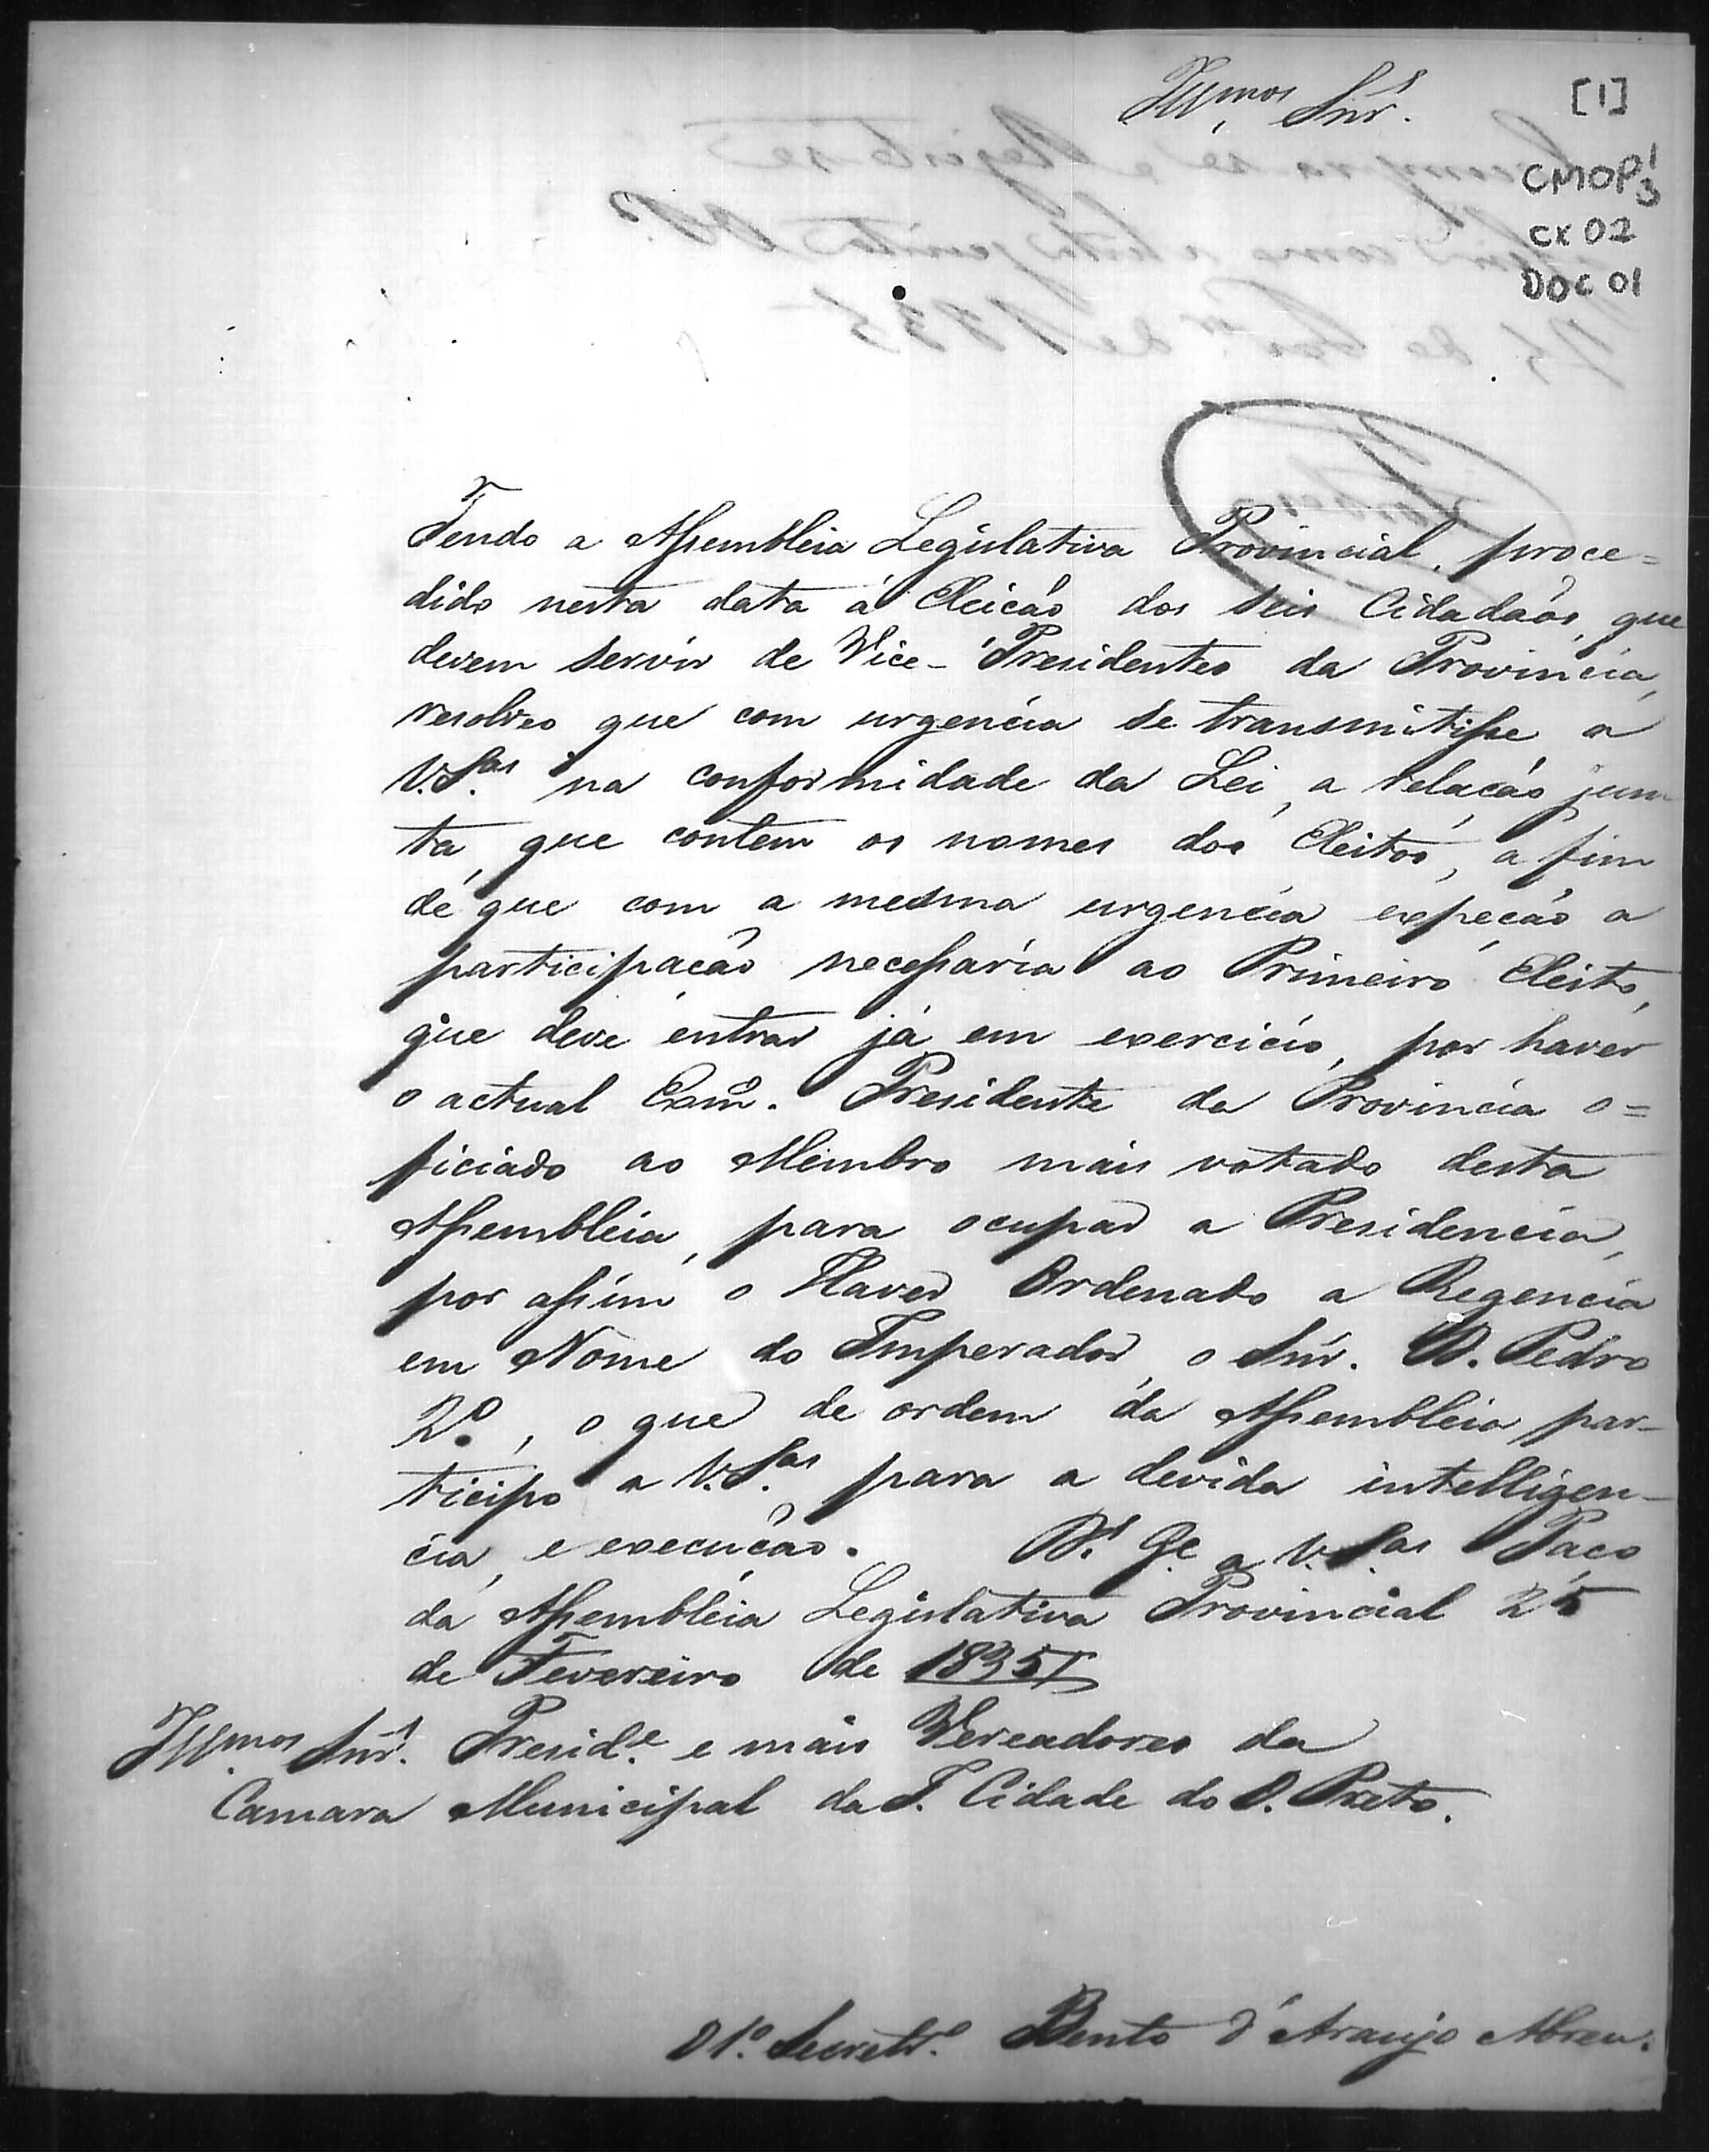 Illmos Snrs.
[1]
CMOP 1/3
CX 02
DOC 01
Tendo a Assembleia Legislativa Provincial, proce=
dido nesta data á Eleicão dos seis Cidadãos, que
devem servir de Vice-Presidentes da Provincia,
resolveo que com urgencia se transmitisse a
V.Sas. na conformidade da Lei, a relação jun-
ta, que contem os nomes dos Eleitos, a fim
de que com a mesma urgencia expeção a
participação necessaria ao Primeiro Eleito,
que deve entrar já em exercicio, por haver
o actual Exmo. Presidente da Provincia o=
ficiado ao Membro mais votado desta
Assembleia, para ocupar a Presidencia,
por assim o Haver Ordenado a Regencia
em Nome do Imperador, o Snr. D. Pedro
2º., o que de ordem da Assembleia par-
ticipo a V.Sas. para a devida intelligen-
cia, e execução. Ds. Ge. a V.Sas. Paço
da Assembleia Legislativa Provincial 25
de Fevereiro de 1835
Illmos. Snrs. Preside. e mais Vereadores da
Camara Municipal da I. Cidade do O. Preto.
O 1º. Secretro. Bento d'Araujo Abreu.